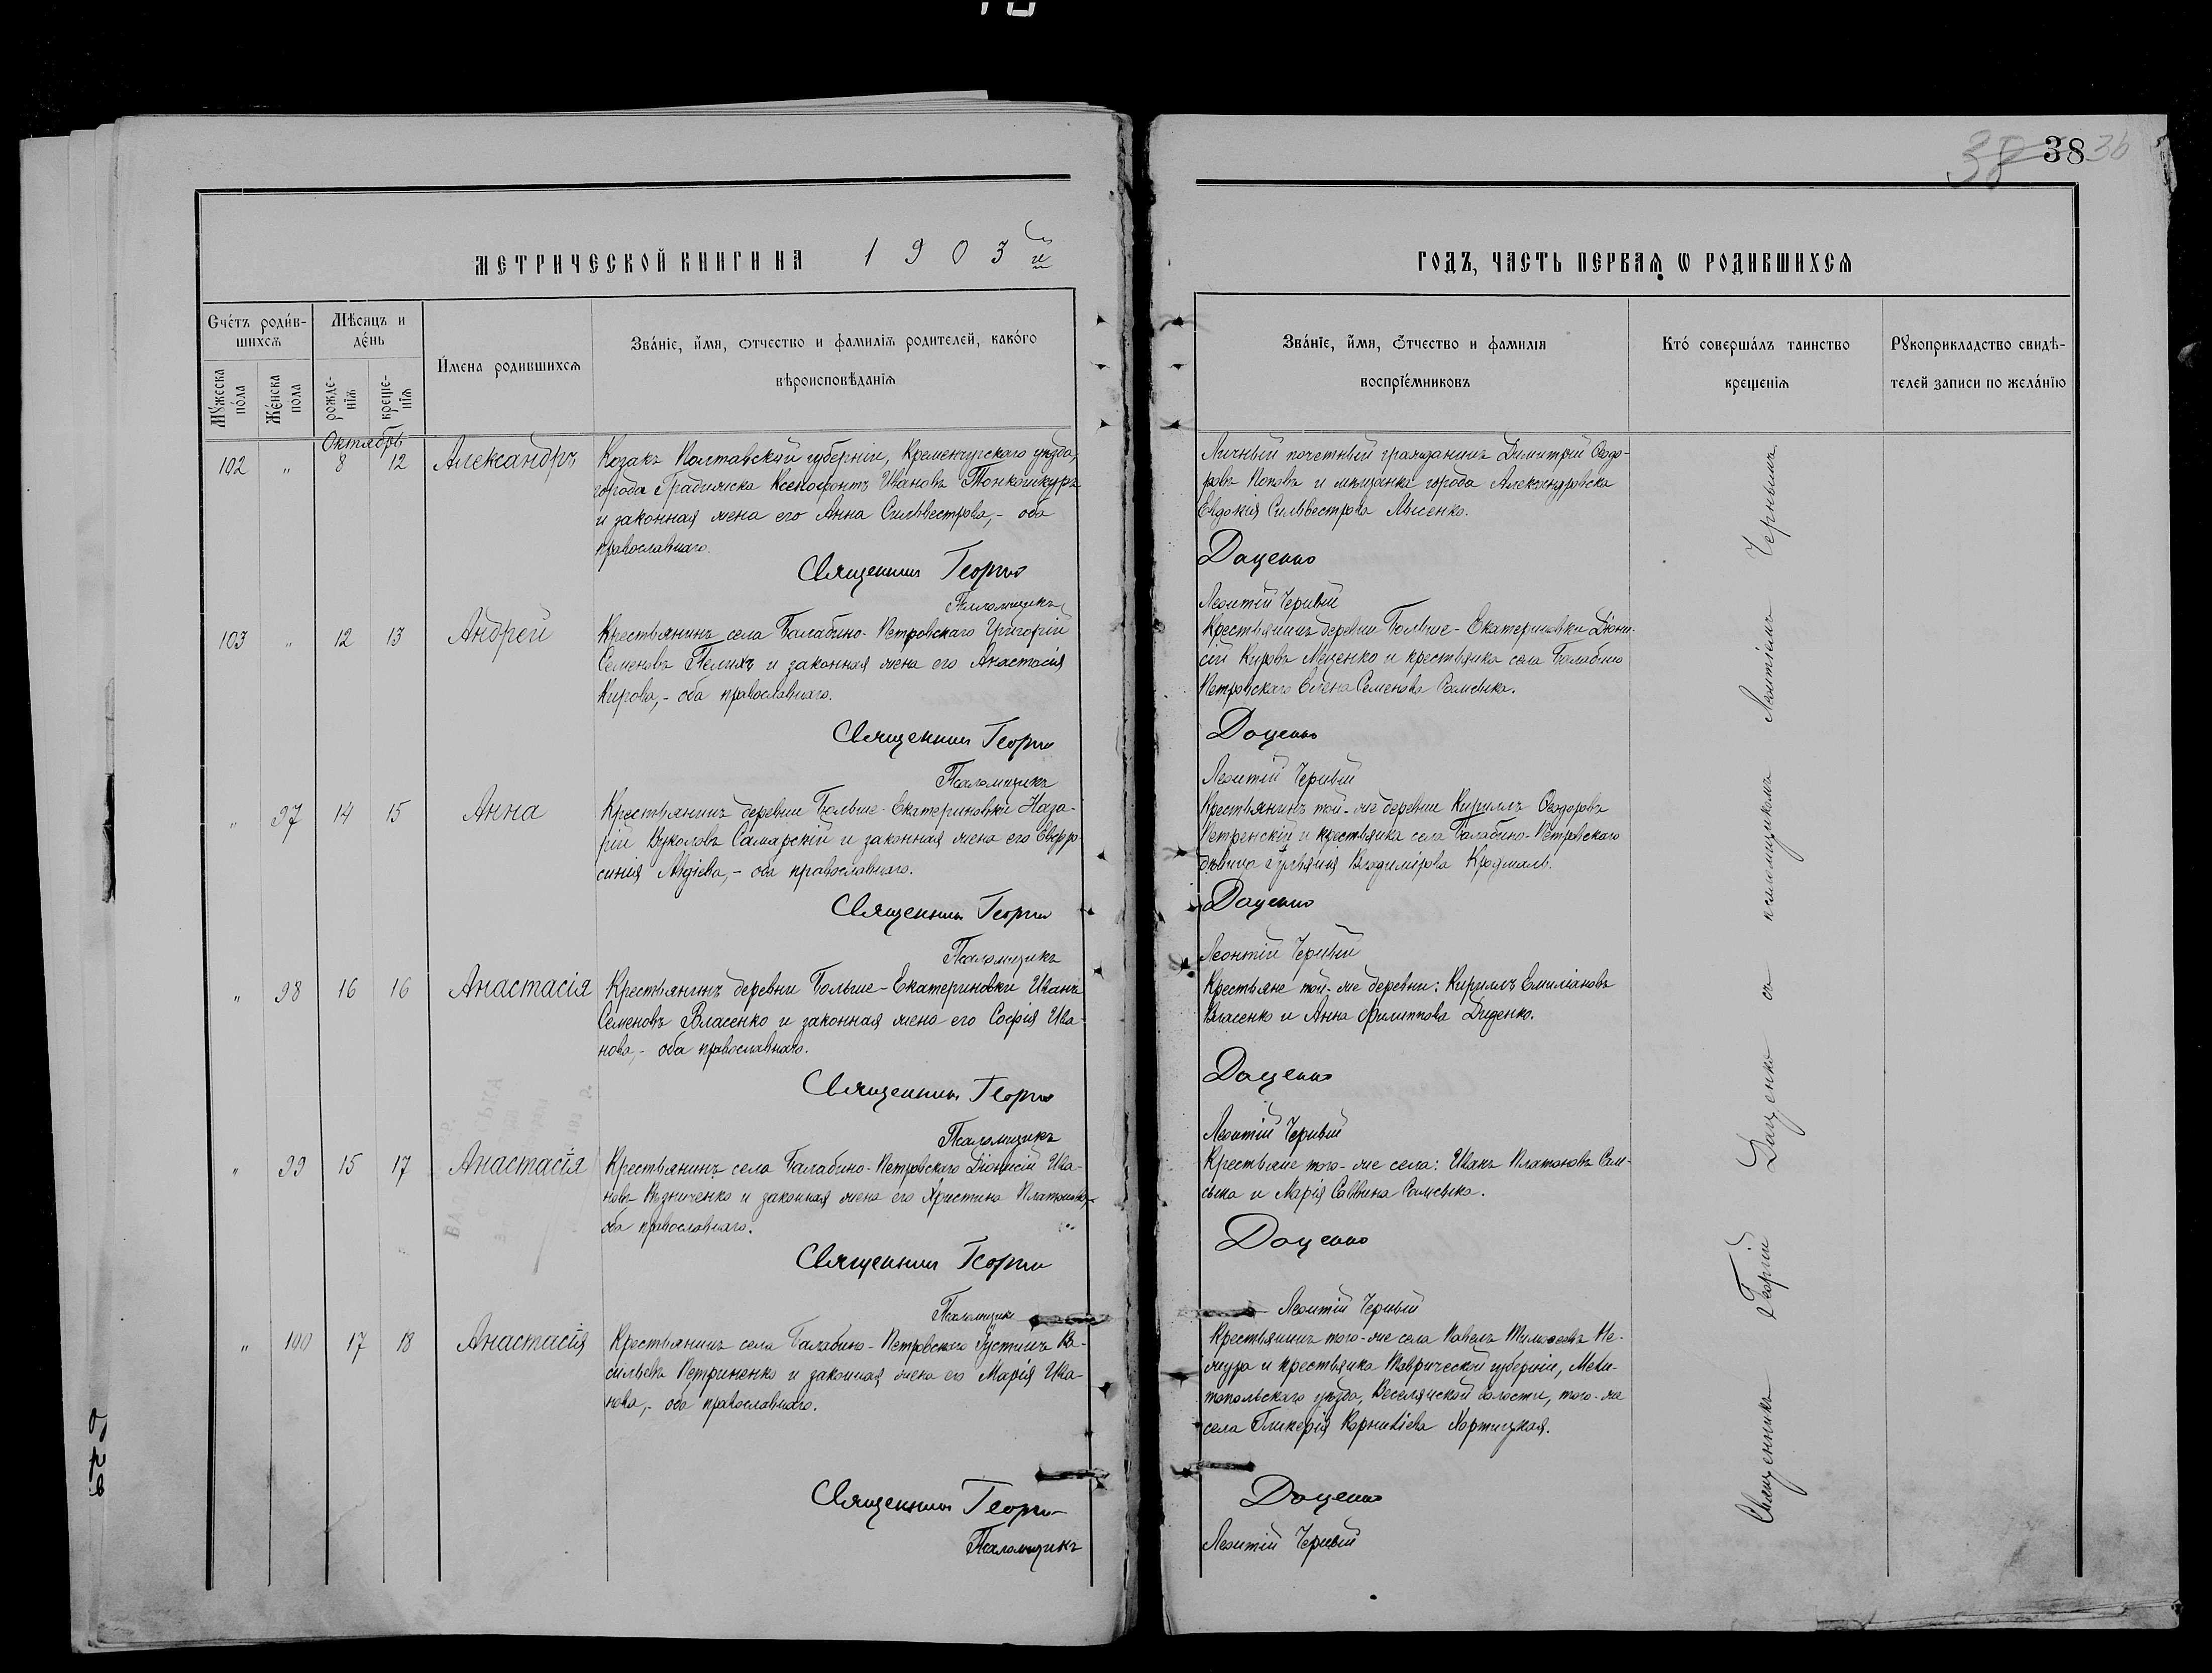 38 38 36
МЕТРИЧЕСКОЙ КНИГИ НА 1903 й
ГОДЪ, ЧАСТЬ ПЕРВАЯ, Ѡ РОДИВШИХСЯ
Счетъ родив-
шихся
Мужеска пола
Женска пола
Мѣсяцъ и
день
рожде-
нія
креще-
нія
Имена родившихся
Званіе, имя, отчество и фамилія родителей, какого
вѣроисповѣданія
Званіе, имя, отчество и фамилія
воспріемниковъ
Кто совершалъ таинство
крещенія
Рукоприкладство свидѣ-
телей записи по желанію
Октябрь
102 " 8 12 Александръ
Козакъ Полтавской губерніи, Кременчугскаго уѣзда,
города Градижска Ксенофонтъ Ивановъ Тонкошкуръ
и законная жена его Анна Сильвестрова, - оба
православнаго.
Священникъ Георгій
Псаломщикъ
Личный почетный гражданинъ Димитрій Ѳеодо-
ровъ Поповъ и мѣщанка города Александровска
Евдокія Сильвестрова Лысенко.
Даценко
Леонтій Черный
103 " 12 13 Андрей
Крестьянинъ села Балабино-Петровскаго Григорій
Семеновъ Пелихъ и законная жена его Анастасія
Кирова, - оба православнаго.
Священникъ Георгій
Псаломщикъ
Крестьянинъ деревни Больше-Екатериновки Діони-
сій Кировъ Маценко и крестьянка села Балабино
Петровскаго Елена Семенова
Даценко
Леонтій Черный
" 97 14 15 Анна
Крестьянинъ деревни Больше-Екатериновки Наза-
рій Вуколовъ Самарскій и законная жена его Евфро-
синія Авдіева, - оба православнаго.
Священникъ Георгій
Псаломщикъ
Крестьянинъ той-же деревни Кириллъ Ѳеодоровъ
Петренскій и крестьянка села Балабино-Петровскаго
дѣвица Владимірова
Даценко
Леонтій Черный
" 98 16 16 Анастасія
Крестьянинъ деревни Больше-Екатериновки Иванъ
Семеновъ Власенко и законная жена его Софія Ива-
нова, - оба православнаго.
Священникъ Георгій
Псаломщикъ
Крестьяне той-же деревни: Кириллъ Емиліановъ
Власенко и Анна Филиппова Диденко.
Даценко
Леонтій Черный
" 99 15 17 Анастасія
Крестьянинъ села Балабино-Петровскаго Діонисій Ива-
новъ и законная жена его Христина Платонова, -
оба православнаго.
Священникъ Георгій
Псаломщикъ
Крестьяне того-же села: Иванъ Платоновъ
и Марія Саввина
Даценко
Леонтій Черный
" 100 17 18 Анастасія
Крестьянинъ села Балабино-Петровскаго Іустинъ Ва-
сильевъ Петриненко и законная жена его Марія Ива-
нова, - оба православнаго.
Священникъ Георгій
Псаломщикъ
Крестьянинъ того-же села Павелъ Тимоѳеевъ Не-
жура и крестьянка Таврической губерніи, Мели-
топольскаго уѣзда, Веселянской волости, того-же
села Гликерія Корниліева Хортицкая.
Даценко
Леонтій Черный
Священникъ Георгій Даценко съ псаломщикомъ Леонтіемъ Чернымъ